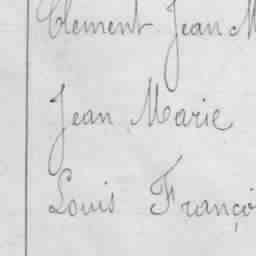 Clement Jean M
Jean Marie
Louis Franço